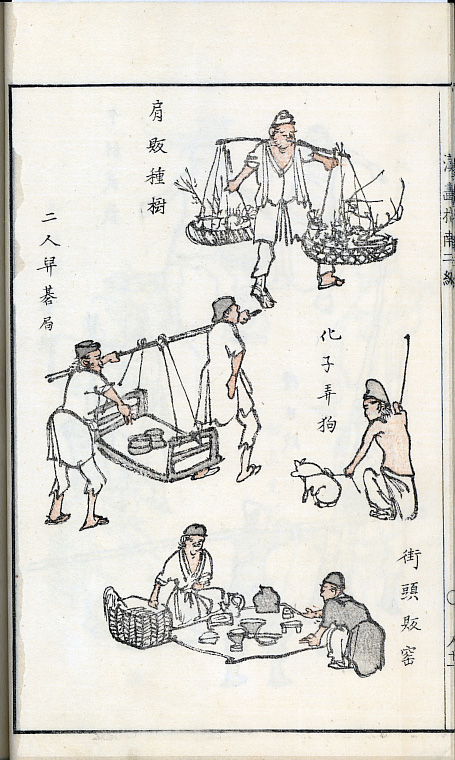 漢畫指南二編
肩販種樹
二人舁碁局
化子弄狗
街頭販窑